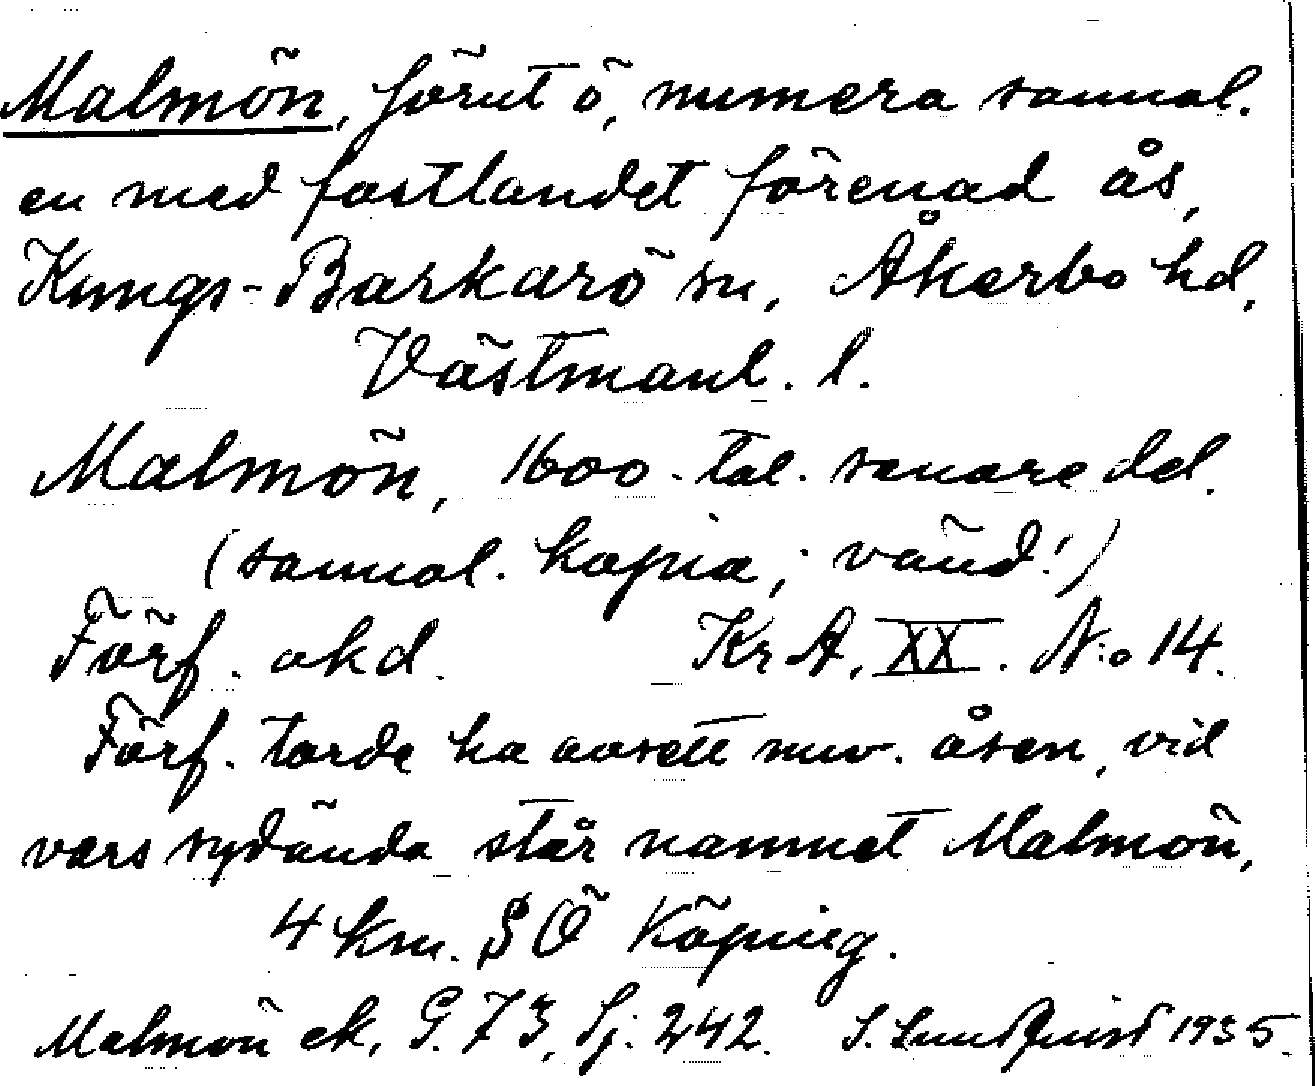 Malmön, förut ö, numera sannol.
en med fastlandet förenad ås,
Kungs-Barkarö sn, Åkerbo hd,
Västmanl. l.
Malmön, 1600-tal. senare del.
(sannol. kopia; vänd!)
Förf. okd. KrA, XX. N:o 14.
Förf. torde ha avsett nuv. åsen, vid
vars sydända står namnet Malmön,
4 km. SÖ Köping.
Malmön ek, G. 73, Sj. 242. S. Lundquist 1935.